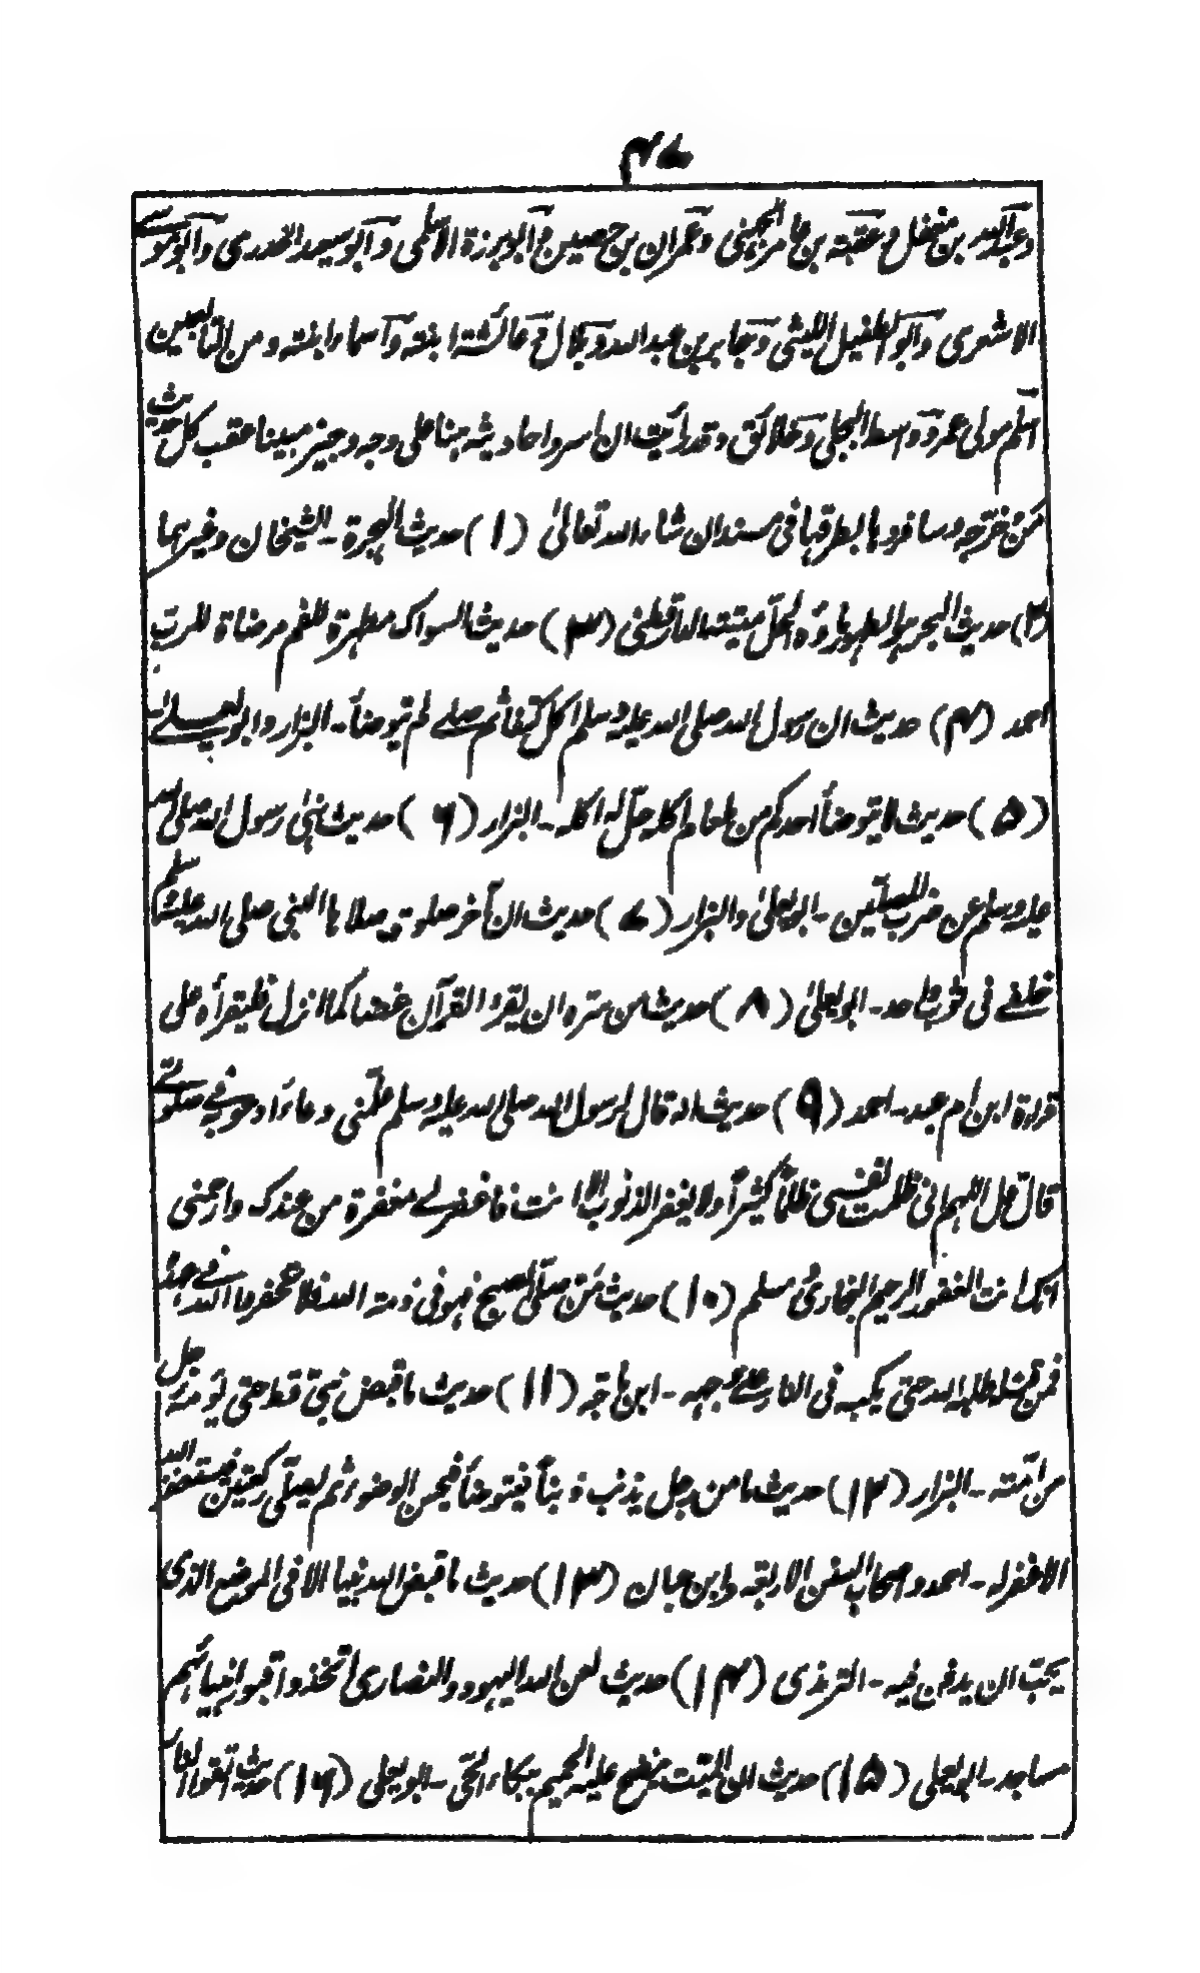 ۴۷
وعبد الله بن مغفل وعقبة بن عامر الجهنى وعمران بن حصين وابو برزة الاسلمى وابو سعيد الخدرى وابو موسے
الاشعرى وابو الطفيل الليثى وجابر بن عبد الله وبلال وعائشة ابنته واسماء ابنته ومن التابعين
اسلم مولى عمر وواسط البجلى وخلائق وقد رأيت ان اسرد احاديثه هنا على وجه وجيز مبينا عقب كل حديث
من خرّجه وسافردها بطرقها فى مسند ان شاء الله تعالىٰ (۱) حديث الهجرة - الشيخان وغيرهما
(۲) حديث البحر هو الطهور ماؤه الحلّ ميتته الدارقطنى (۳) حديث السواك مطهرة للفم مرضاة للرب
احمد (۴) حديث ان رسول الله صلى الله عليه وسلم اكل كتفا ثم صلے لم يتوضأ - البزار وابو يعلے
(۵) حديث لا يتوضأ احدكم من طعام اكله حلّ له اكله - البزار (۶) حديث نهىٰ رسول الله صلى الله
عليه وسلم عن ضرب المصلّين - ابو يعلىٰ والبزار (۷) حديث ان آخر صلوة صلاها النبى صلى الله عليه وسلم
خلفے فى ثوب واحد - ابو يعلىٰ (۸) حديث من سره ان يقرء القرآن غضا كما انزل فليقرأه على
قراءة ابن ام عبد - احمد (۹) حديث انه قال لرسول الله صلى الله عليه وسلم علّمنى دعاء ادعو به فے صلوتے
قال قل اللهم انى ظلمت نفسى ظلما كثيراً ولا يغفر الذنوب الا انت فاغفر لے مغفرة من عندك وارحمنى
انك انت الغفور الرحيم البخارى مسلم (۱۰) حديث من صلّى الصبح فهو فى ذمة الله فلا تخفروا الله فے عهده
فمن قتله طلبه الله حتى يكبه فى النار علے وجهه - ابن ماجه (۱۱) حديث ما قبض نبىّ قط حتى يؤمّه رجل
من امّته - البزار (۱۲) حديث ما من رجل يذنب ذنباً فيتوضأ فيحسن الوضوء ثم يصلّى ركعتين فيستغفر الله
الا غفر له - احمد واصحاب السنن الاربعة وابن حبان (۱۳) حديث ما قبض الله نبيا الا فى الموضع الذى
يحبّ ان يدفن فيه - الترمذى (۱۴) حديث لعن الله اليهود والنصارى اتخذوا قبور انبيائهم
مساجد - ابو يعلى (۱۵) حديث ان الميّت ينضح عليه الحميم ببكاء الحىّ - ابو يعلى (۱۶) حديث اتقوا النار